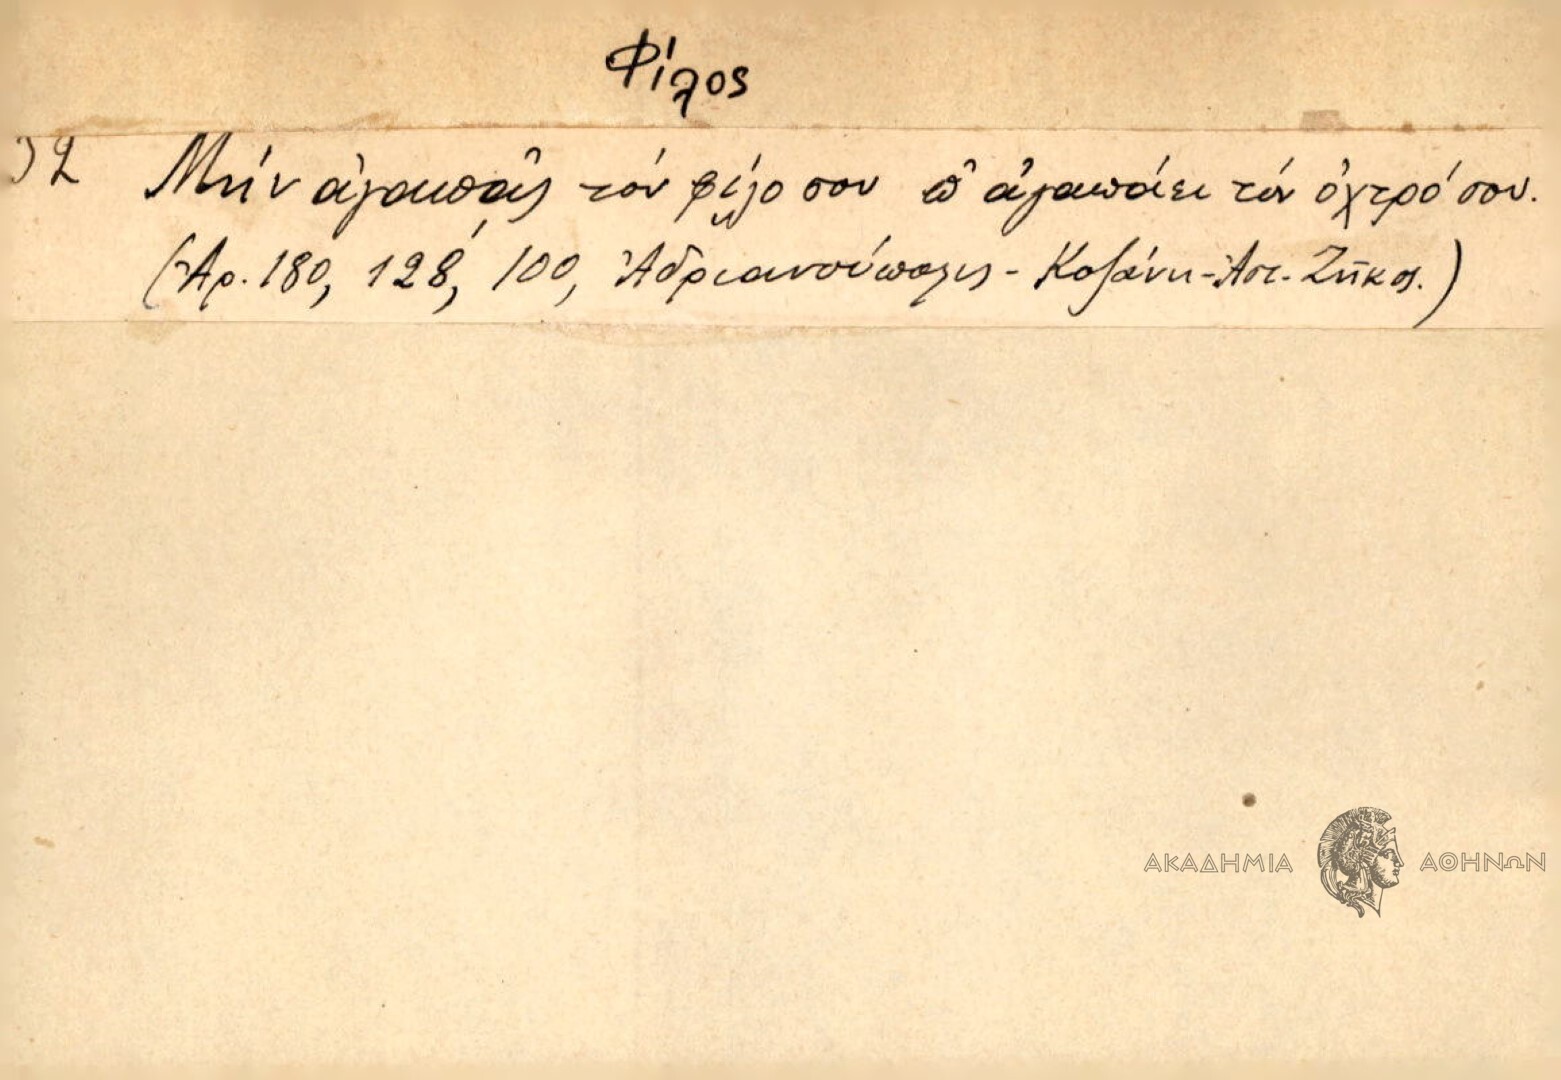 Φίλος
32 Μήν ἀγαπᾷς τόν φίλο σου π' ἀγαπάει τόν ὀχτρό σου.
(Ἀρ. 180, 128, 100, Ἀδριανούπολις - Κοζάνη - Ἀπ. Ζῆκος.)
ΑΚΑΔΗΜΙΑ ΑΘΗΝΩΝ